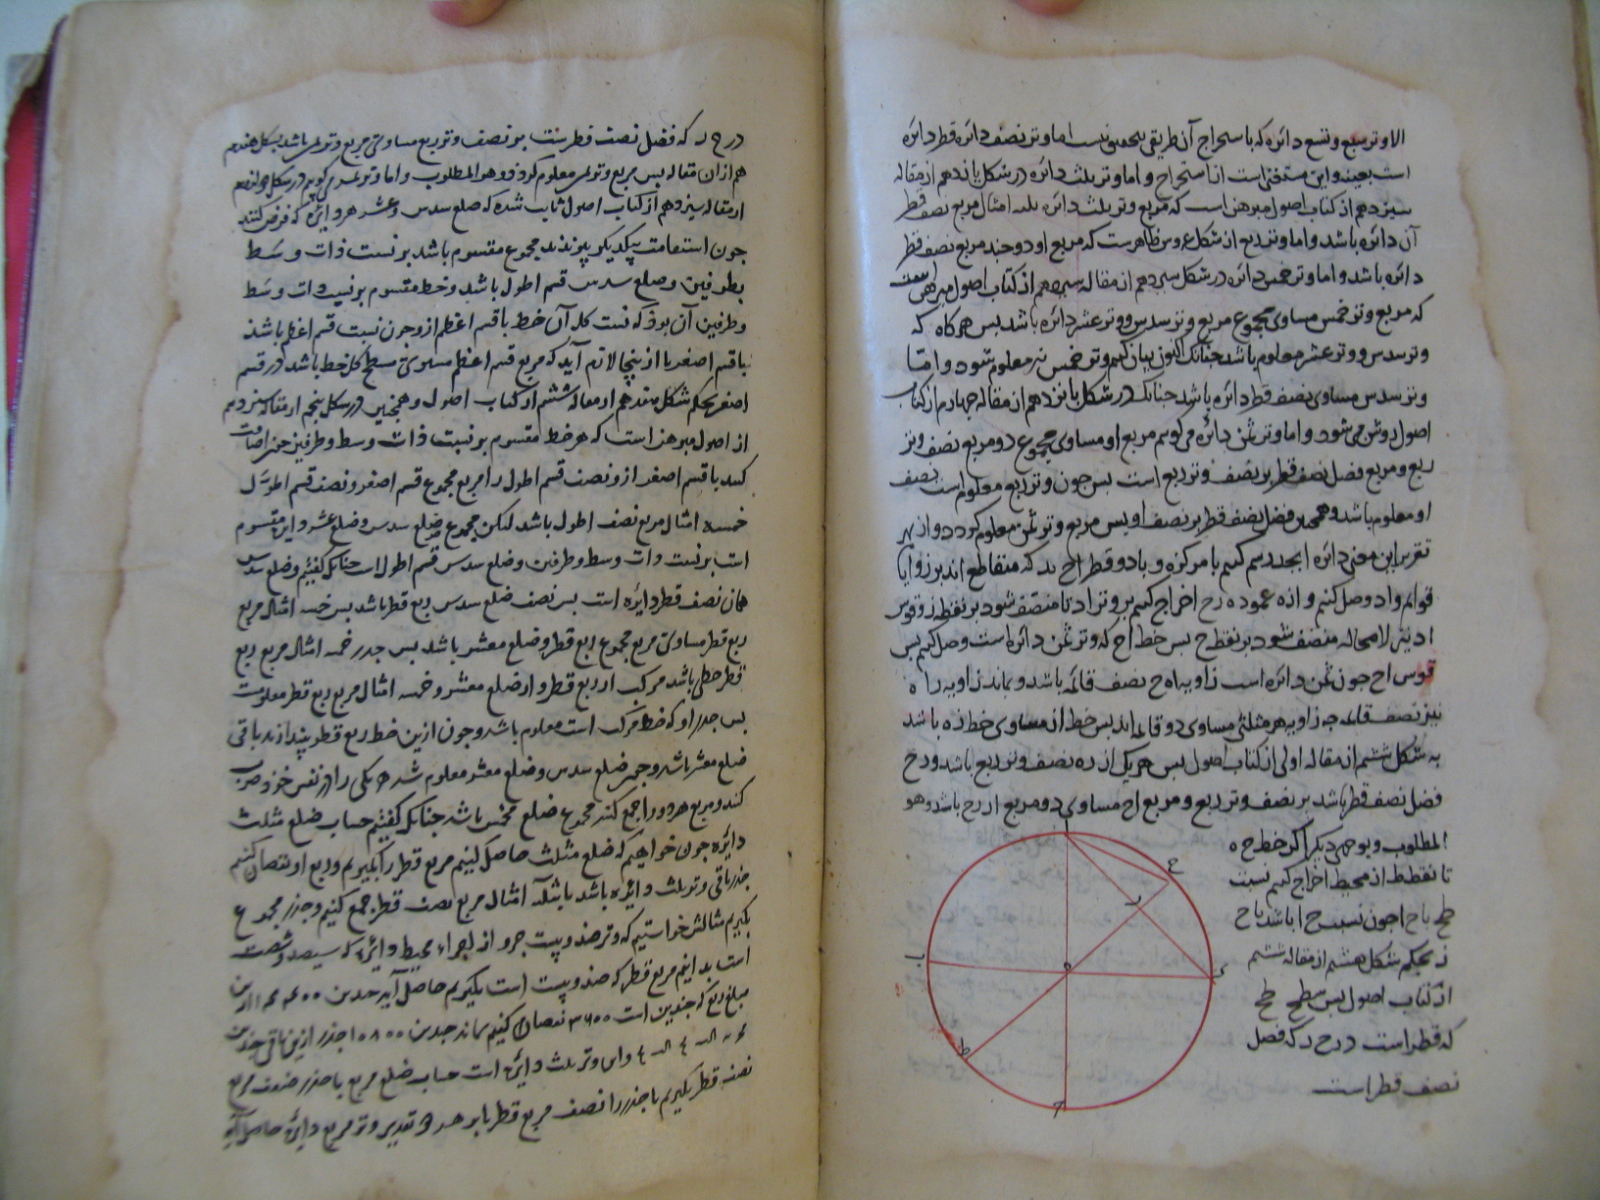 الا وتر سبع و تسع دائره که باستخراج آن طریقی تحقیق نیست اما وتر نصف دائره قطر دائره
است بعینه و این مستغنی است از استخراج و اما وتر ثلث دائره در شکل یازدهم از مقاله
سیزدهم از کتاب اصول مبرهن است که مربع وتر ثلث دائره ثلثه امثال مربع نصف قطر
آن دائره باشد و اما وتر ربع از شکل عروس ظاهرست که مربع او دو چند مربع نصف قطر
دائره باشد و اما وتر خمس دائره در شکل سیزدهم از مقاله سیزدهم از کتاب اصول مبرهن است
که مربع وتر خمس مساوی مجموع مربع وتر سدس و وتر عشر دائره باشد پس هرکاه که
وتر سدس و وتر عشر معلوم باشد چنانک اکنون بیان کنیم وتر خمس نیز معلوم شود و اما
وتر سدس مساوی نصف قطر دائره باشد چنانک در شکل پانزدهم از مقاله چهارم از کتاب
اصول روشن می شود و اما وتر ثمن دائره می کوییم مربع او مساوی مجموع دو مربع نصف وتر
ربع و مربع فضل نصف قطر بر نصف وتر ربع است پس چون وتر ربع معلوم است نصف
او معلوم باشد و همچنین فضل نصف قطر بر نصف او پس مربع وتر ثمن معلوم کردد و از بهر
تقریر این معنی دائره ابجد رسم کنیم بر مرکز ه و با دو قطر اج بد که متقاطع اند بر زوایا
قوائم و اد وصل کنیم و از ه عمود ه رح اخراج کنیم بر وتر اد تا منصف شود بر نقطه ز و قوس
اد نیز لا محاله منصف شود بر نقطه ح پس خط اح که وتر ثمن دائره است وصل کنیم پس
قوس اح چون ثمن دائره است زاویه اه ح نصف قائمه باشد و بماند زاویه راه
نیز نصف قائمه چه زاویه هر مثلثی مساوی دو قائمه اند پس خط از مساوی خط زه باشد
به شکل ششم از مقاله اولی از کتاب اصول پس هریک از ره نصف وتر ربع باشد و رح
فضل نصف قطر باشد بر نصف وتر ربع و مربع اح مساوی دو مربع از رح باشد و هو
المطلوب و بوجهی دیکر اکر خط ح ه
تا نقطه ط از محیط اخراج کنیم نسبت
طح با ح ا چون نسبت ح ا باشد با ح
ز بحکم شکل هشتم از مقاله ششم
از کتاب اصول پس سطح طح
که قطر است در ح ر که فضل
نصف قطر است
ا
ح
ر
د
ه
ب
ط
ج
در ح ر که فضل نصف قطرست بر نصف وتر ربع مساوی مربع وتر ثمن باشد بشکل هفدهم
هم از ان مقاله پس مربع وتر ثمن معلوم کردد و هو المطلوب و اما وتر عشر می کوییم در شکل
از مقاله سیزدهم از کتاب اصول ثابت شده که ضلع سدس و عشر هر دایره که فرض کنند
چون استقامت بیکدیکر پیوندند مجموع مقسوم باشد بر نسبت ذات وسط
و طرفین و ضلع سدس قسم اطول باشد و خط مقسوم بر نسبت ذات وسط
و طرفین آن بود که نسبت کل آن خط با قسم اعظم ازو چون نسبت قسم اعظم باشد
با قسم اصغر تا از ینجا لازم آید که مربع قسم اعظم مساوی سطح کل خط باشد در قسم
اصغر بحکم شکل هفدهم از مقاله ششم از کتاب اصول و همچنین در شکل پنجم از مقاله سیزدهم
از اصول مبرهن است که هر خط مقسوم بر نسبت ذات وسط و طرفین چون اضافت
کنند با قسم اصغر ازو نصف قسم اطول را مربع مجموع قسم اصغر و نصف قسم اطول
خمسه امثال مربع نصف اطول باشد لیکن مجموع ضلع سدس و ضلع عشر دایره مقسوم
است بر نسبت ذات وسط و طرفین و ضلع سدس قسم اطول است چنانک کفتیم و ضلع سدس
همان نصف قطر دایره است پس نصف ضلع سدس ربع قطر باشد پس خمسه امثال مربع
ربع قطر مساوی مربع مجموع ربع قطر و ضلع معشر باشد پس جذر خمسه امثال مربع ربع
قطر خطی باشد مرکب از ربع قطر و از ضلع معشر و خمسه امثال مربع ربع قطر معلومست
پس جذر او که خط مرکب است معلوم باشد و چون ازین خط ربع قطر بیندازند باقی
ضلع معشر باشد و چون ضلع سدس و ضلع معشر معلوم شد هر یکی را در نفس خود ضرب
کنند و مربع هر دو را جمع کنند مجموع ضلع مخمس باشد چنانک کفتیم حساب ضلع مثلث
دایره چون خواهیم که ضلع مثلث حاصل کنیم مربع قطر را بگیریم و ربع او نقصان کنیم
جذر باقی وتر ثلث دایره باشد یا ثلثه امثال مربع نصف قطر جمع کنیم و جذر مجموع
بگیریم مثالش خواستیم که وتر صد و بیست جزو از اجزاء محیط دایره که سیصد و شصت
است بدانیم مربع قطر که صد و بیست است بگیریم حاصل آید چندین ۱۴۴۰۰ ازین
مبلغ ربع که چندین است ۳۶۰۰ نقصان کنیم بماند چندین ۱۰۸۰۰ جذر ازین باقی چندین
و این وتر ثلث دایره است حساب ضلع مربع یا جذر ضعف مربع
نصف قطر بگیریم یا جذر نصف مربع قطر تا بر هر دو تقدیر وتر مربع دایره حاصل آید